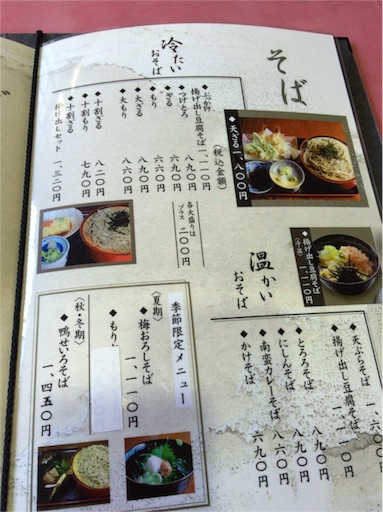 そば
◆天ざる 一、八〇〇円
◆揚げ出し豆腐そば
(冷・温) 一、一一〇円
冷たい
おそば
(税込金額)
◆ぶっかけ
揚げ出し豆腐そば 一、一一〇円
◆つけとろ 八九〇円
◆ざる 六九〇円
◆もり 六六〇円
◆大ざる 八九〇円
◆大もり 八六〇円
◆十割ざる 八二〇円
◆十割もり 七九〇円
◆揚げ出しセット 一、三二〇円
各大盛りは
プラス 二〇〇円
温かい
おそば
◆天ぷらそば
◆揚げ出し豆腐そば 一、一一〇円
◆とろろそば 八九〇円
◆にしんそば 八九〇円
◆南蛮カレーそば 八六〇円
◆かけそば 六九〇円
季節限定メニュー
〈夏期〉
◆梅おろしそば 一、一一〇円
◆もり 円
〈秋・冬期〉
◆鴨せいろそば 一、四五〇円